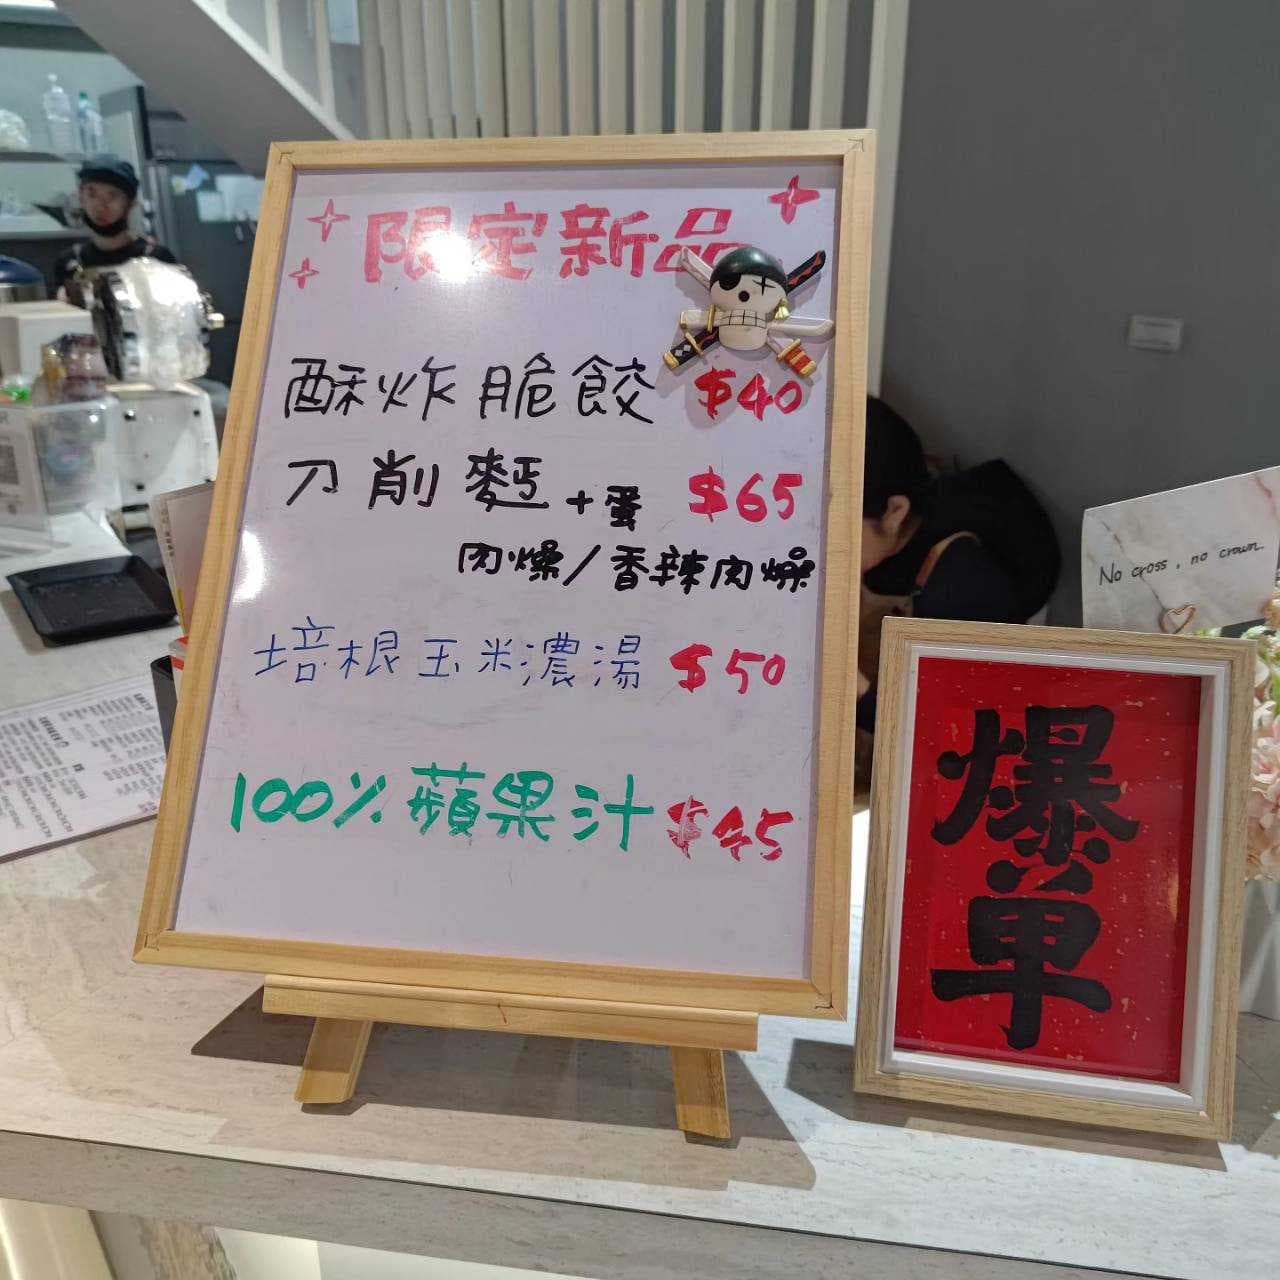 限定新品
酥炸脆餃 $40
刀削麵+蛋 $65
肉燥/香辣肉燥
培根玉米濃湯 $50
100%蘋果汁 $45
No cross, no crown.
爆單